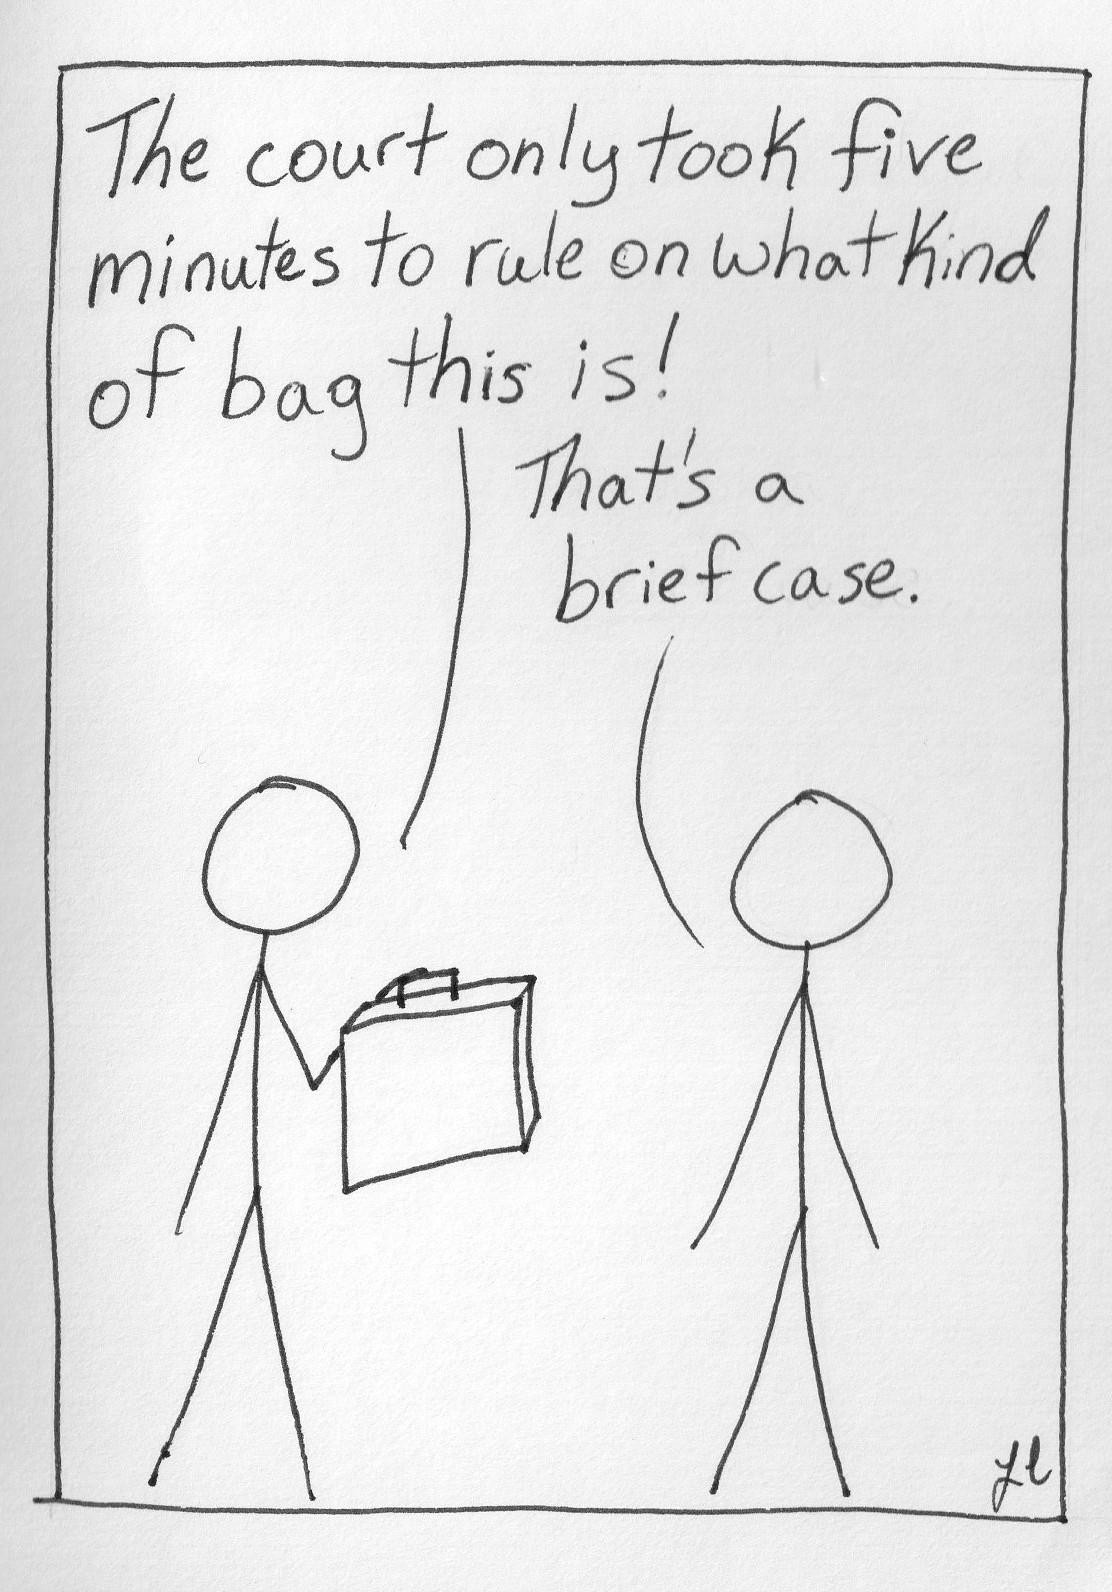 The court only took five
minutes to rule on what kind
of bag this is!
That's a
brief case.